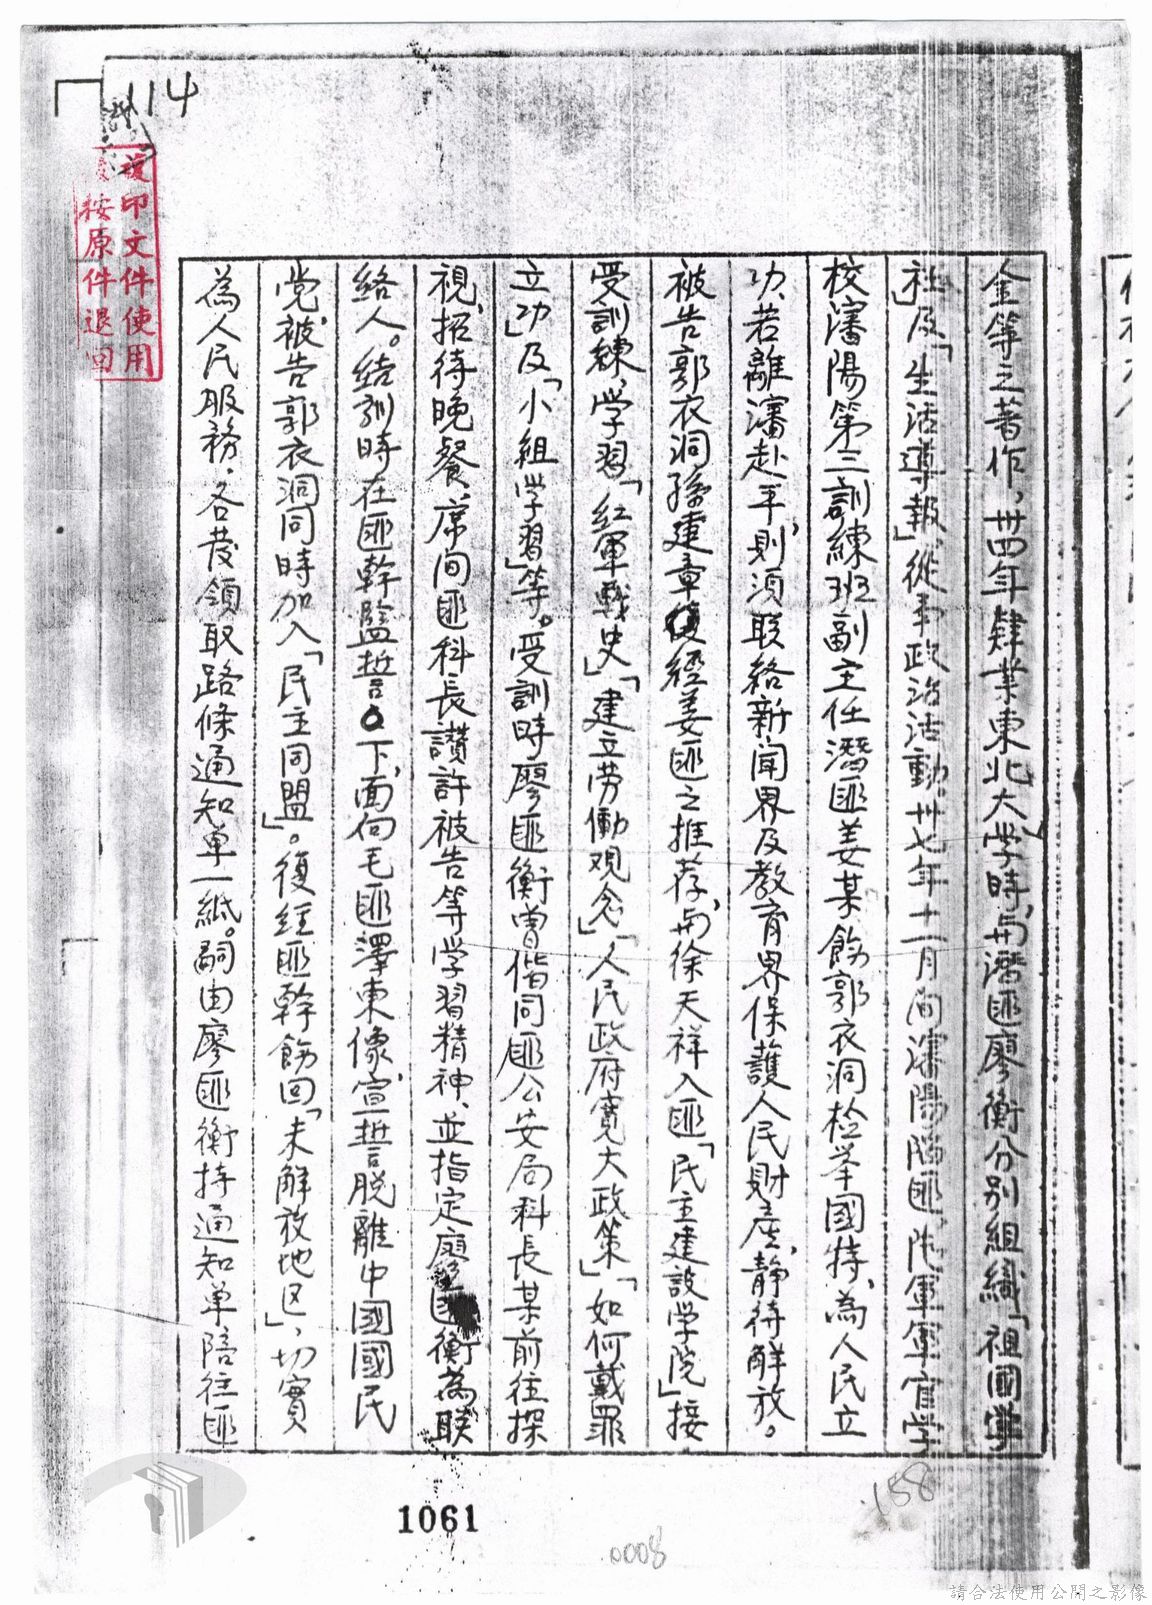 金等之著作，卅四年肄業東北大学時，与潛匪廖衡分別組織「祖國学
社」及「生活導報」從事政治活動。卅七年十一月间瀋陽陷匪，陆軍軍官学
校瀋陽第三訓練班副主任潛匪姜某飭郭衣洞检举國特，為人民立
功，若離瀋赴平，則須联絡新闻界及教育界保護人民財產，静待解放。
被告郭衣洞孫建章復經姜匪之推荐，与徐天祥入匪「民主建設学院」接
受訓練，学習「紅軍戰史」「建立劳働观念」「人民政府寬大政策」「如何戴罪
立功」及「小組学習」等。受訓時廖匪衡曾偕同匪公安局科長某前往探
視，招待晚餐，席间匪科長讃許被告等学習精神，並指定廖匪衡為联
絡人。结訓時在匪幹監誓下，面向毛匪澤東像，宣誓脱離中國國民
党，被告郭衣洞同時加入「民主同盟」。復经匪幹飭回「未解放地区」，切實
為人民服務，各发領取路條通知单一紙。嗣由廖匪衡持通知单陪往匪
114
複印文件使用
後按原件退回
1061
158
0008
請合法使用公開之影像